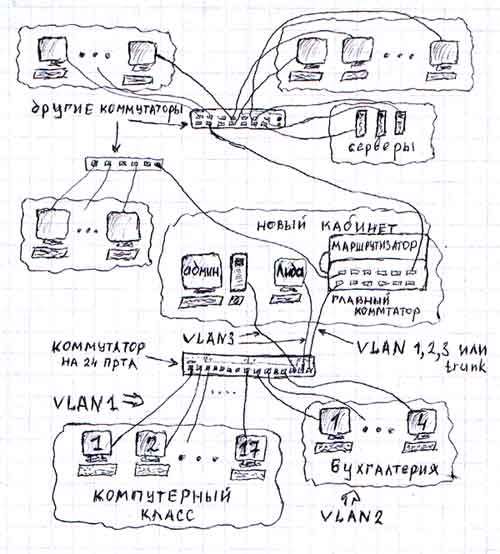 ДРУГИЕ КОММУТАТОРЫ
серверы
НОВЫЙ КАБИНЕТ
МАРШРУТИЗАТОР
админ
Лида
ГЛАВНЫЙ
КОММТАТОР
VLAN3
КОММУТАТОР
НА 24 ПРТА
VLAN 1,2,3 или
trunk
VLAN1
....
1
2
17
1
4
КОМПУТЕРНЫЙ
КЛАСС
бухгалтерия
VLAN2